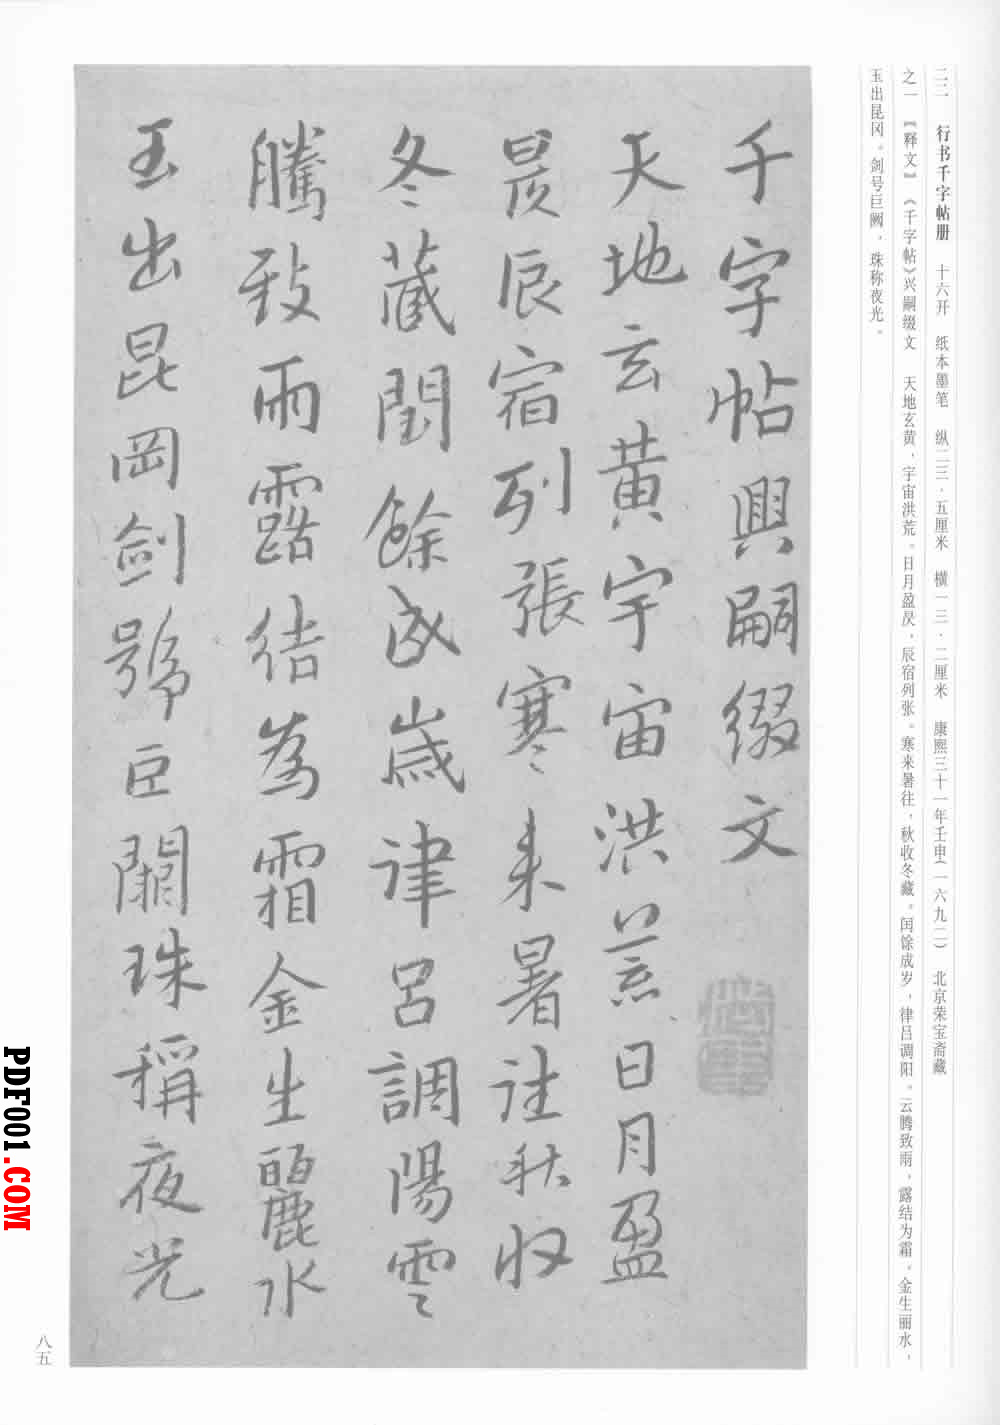 二二　行书千字帖册　十六开　纸本墨笔　纵二三·五厘米　横一三·二厘米　康熙三十一年壬申(一六九二)　北京荣宝斋藏
之一　《释文》　《千字帖》兴嗣缀文　天地玄黄，宇宙洪荒。日月盈昃，辰宿列张。寒来暑往，秋收冬藏。闰馀成岁，律吕调阳。云腾致雨，露结为霜。金生丽水，
玉出昆冈。剑号巨阙，珠称夜光。
千字帖興嗣缀文
天地玄黄宇宙洪荒日月盈
昃辰宿列張寒来暑往秋收
冬藏閏餘成歲律吕調陽雲
騰致雨露结為霜金生麗水
玉出昆岡剑號巨闕珠稱夜光
八五
PDF001.COM